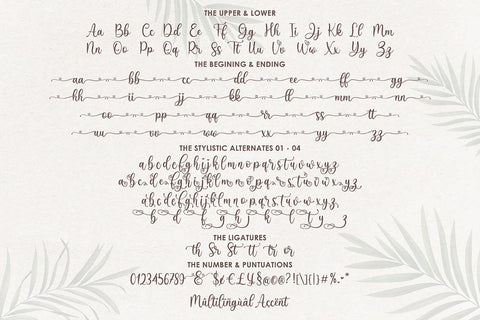 THE UPPER & LOWER
Aa Bb Cc Dd Ee Ff Gg Hh Ii Jj Kk Ll Mm
Nn Oo Pp Qq Rr Ss Tt Uu Vv Ww Xx Yy Zz
THE BEGINING & ENDING
aa bb cc dd ee ff gg
hh ii jj kk ll mm nn
oo pp qq rr ss tt
uu vv ww xx yy zz
THE STYLISTIC ALTERNATES 01 - 04
abcdefghijklmnopqrstuvwxyz
abcdefghijklmnopqrstuvwxyz
abcdefghijklmnopqrstuvwxyz
b d f g h j k l t y z
THE LIGATURES
th Sr St tt tr or
THE NUMBER & PUNTUATIONS
0123456789 & $¢€£¥§@©?!(\)()#%-"*
Multilingual Accent